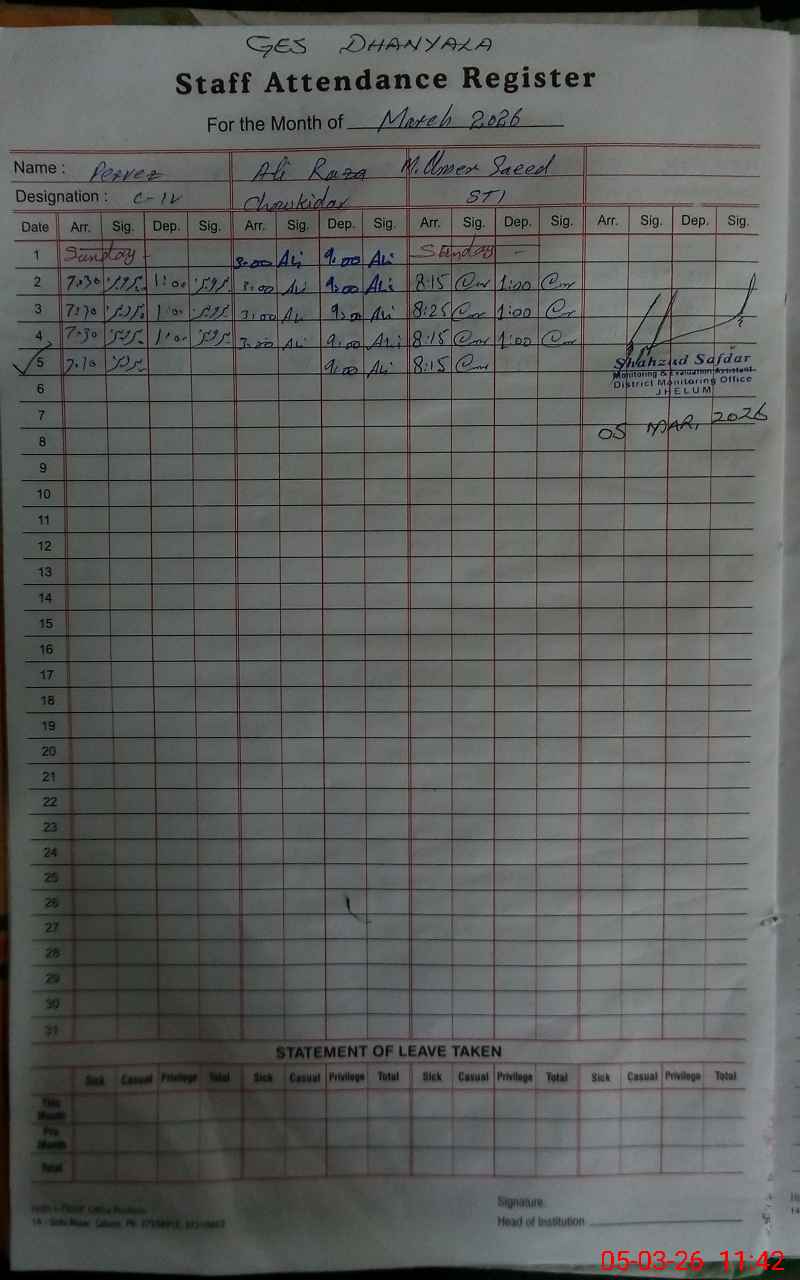 GES DHANYALA
Staff Attendance Register
For the Month of March 2026
Name : Pervez Ali Raza M. Umer Saeed
Designation : C-IV Chowkidar STI
Date Arr. Sig. Dep. Sig. Arr. Sig. Dep. Sig. Arr. Sig. Dep. Sig. Arr. Sig. Dep. Sig.
1 Sunday - 3:00 Ali 9:00 Ali Sunday -
2 7:30 1:00 3:00 Ali 9:00 Ali 8:15 1:00
3 7:30 1:00 3:00 Ali 9:00 Ali 8:25 1:00
4 7:30 1:00 3:00 Ali 9:00 Ali 8:15 1:00
5 7:30 9:00 Ali 8:15
Shahzad Safdar
Monitoring & Evaluation Assistant
District Monitoring Office
JHELUM
6
7
05 MAR, 2026
8
9
10
11
12
13
14
15
16
17
18
19
20
21
22
23
24
25
26
27
28
29
30
31
STATEMENT OF LEAVE TAKEN
Sick Casual Privilege Total Sick Casual Privilege Total Sick Casual Privilege Total Sick Casual Privilege Total
This Month
Pre Month
Total
Signature
Head of Institution
05-03-26 11:42